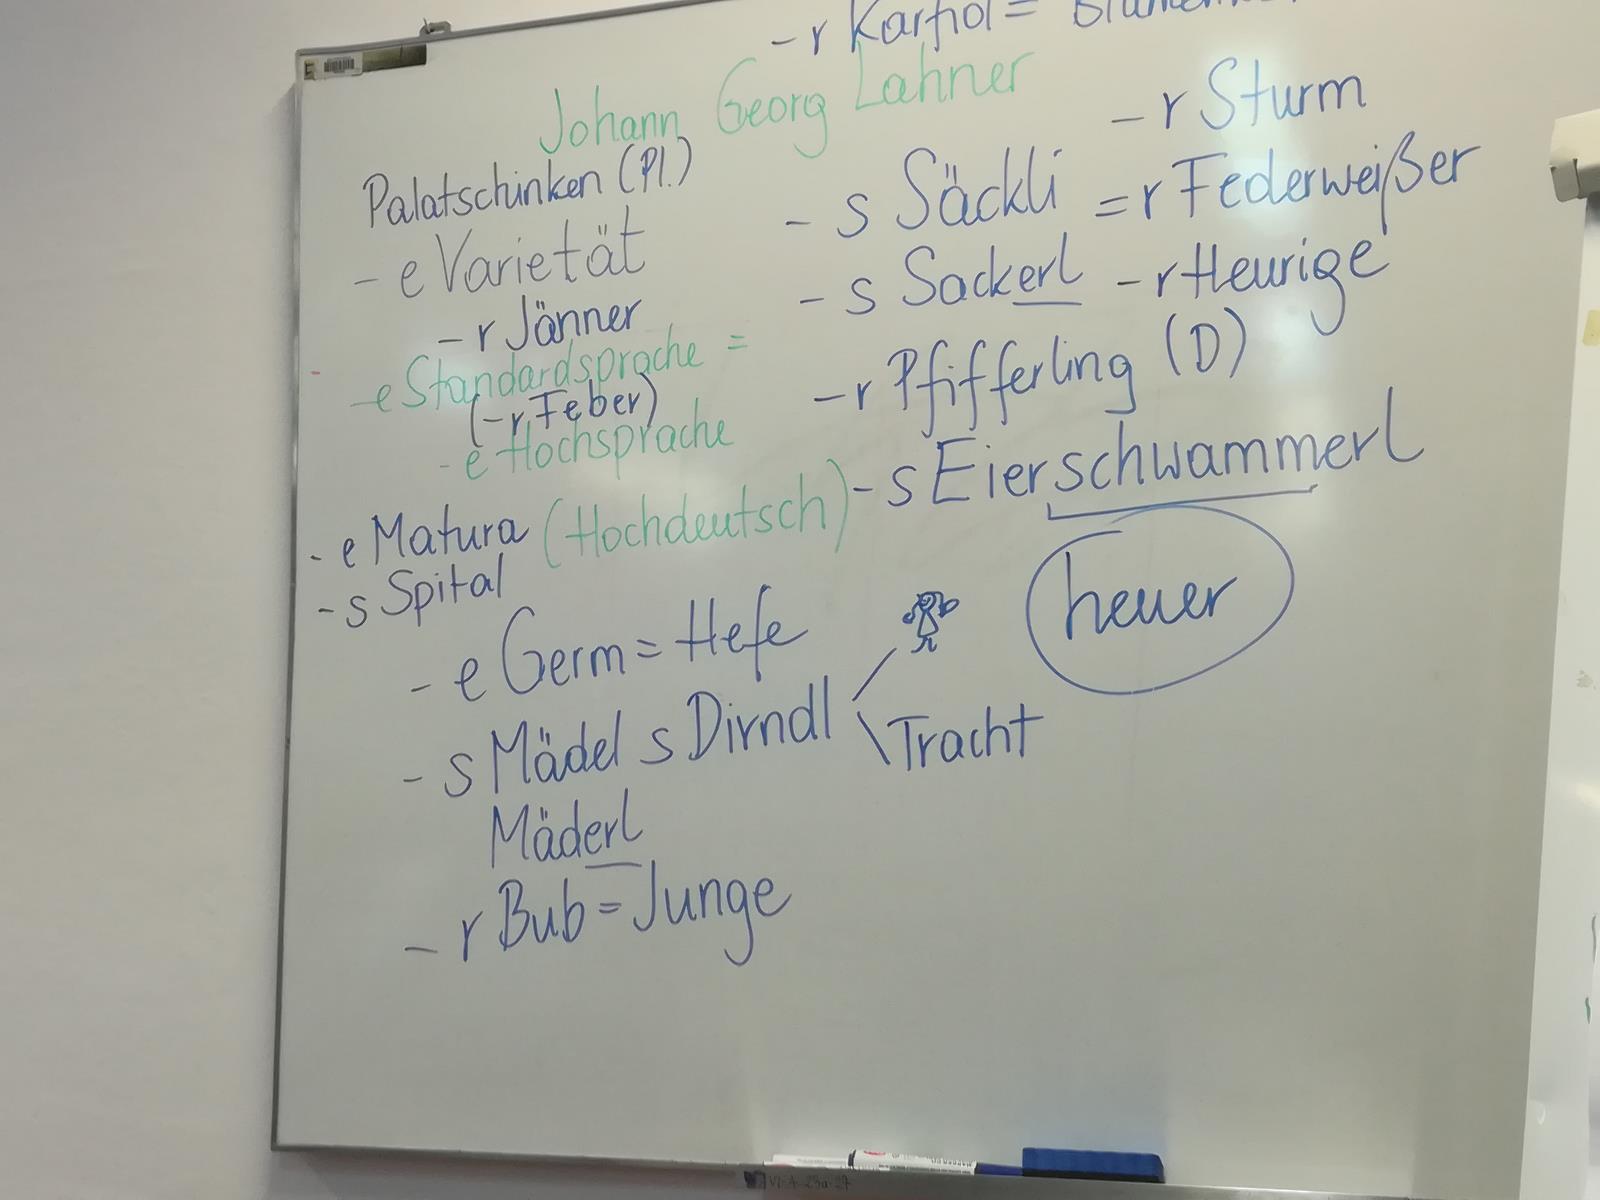 - r Karfiol =
Johann Georg Lahner
Palatschinken (Pl.)
- e Varietät
- r Jänner
- e Standardsprache =
(- r Feber)
- e Hochsprache
- e Matura (Hochdeutsch)
- s Spital
- e Germ = Hefe
- s Mädel s Dirndl
Tracht
Mäderl
- r Bub = Junge
- r Sturm
- s Säckli = r Federweißer
- s Sackerl - r Heurige
- r Pfifferling (D)
- s Eierschwammerl
heuer